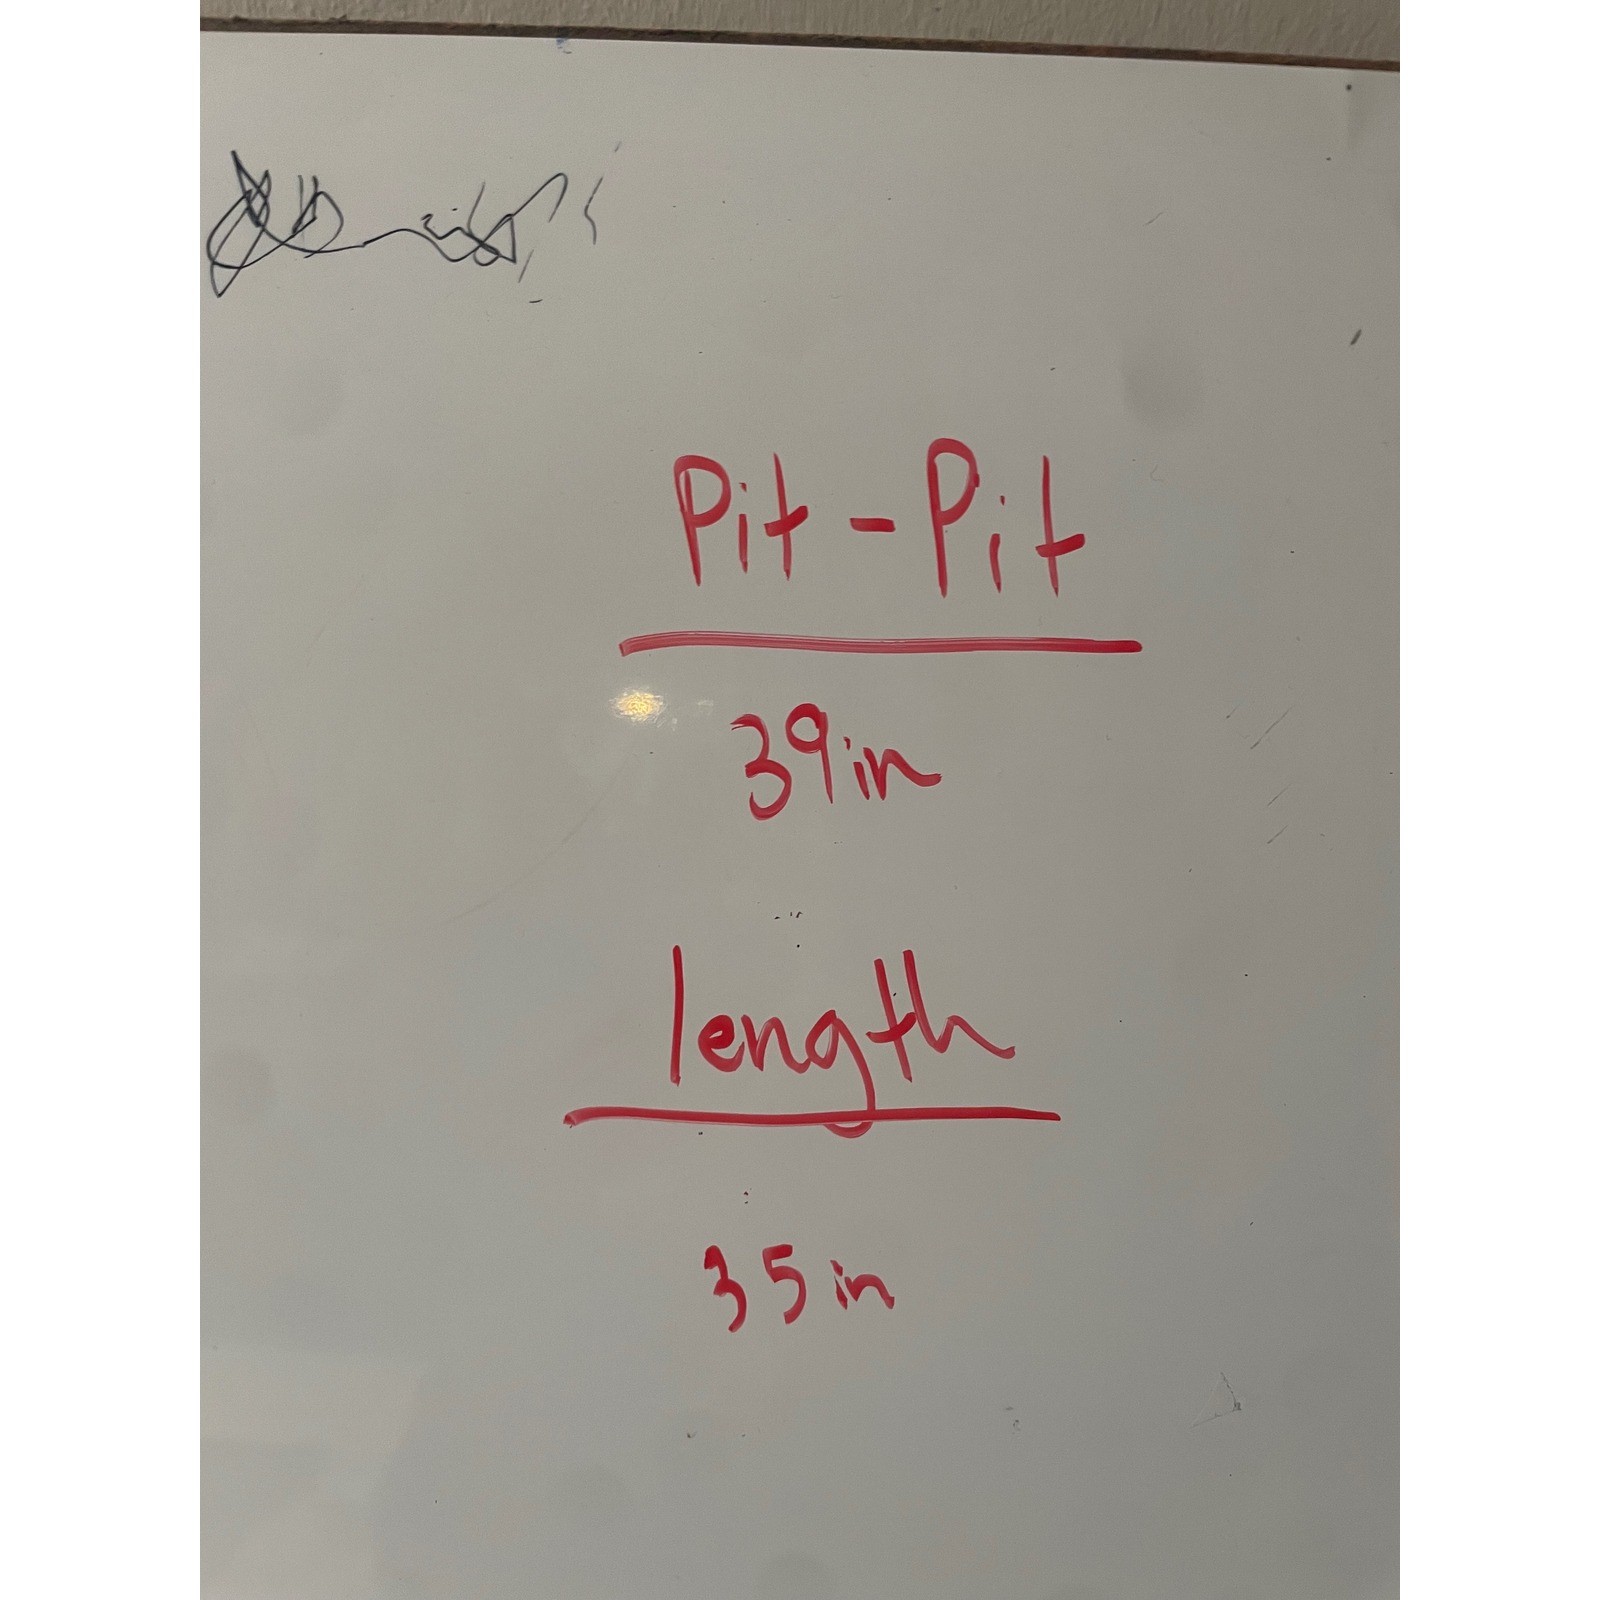 Pit - Pit
39in
length
35in